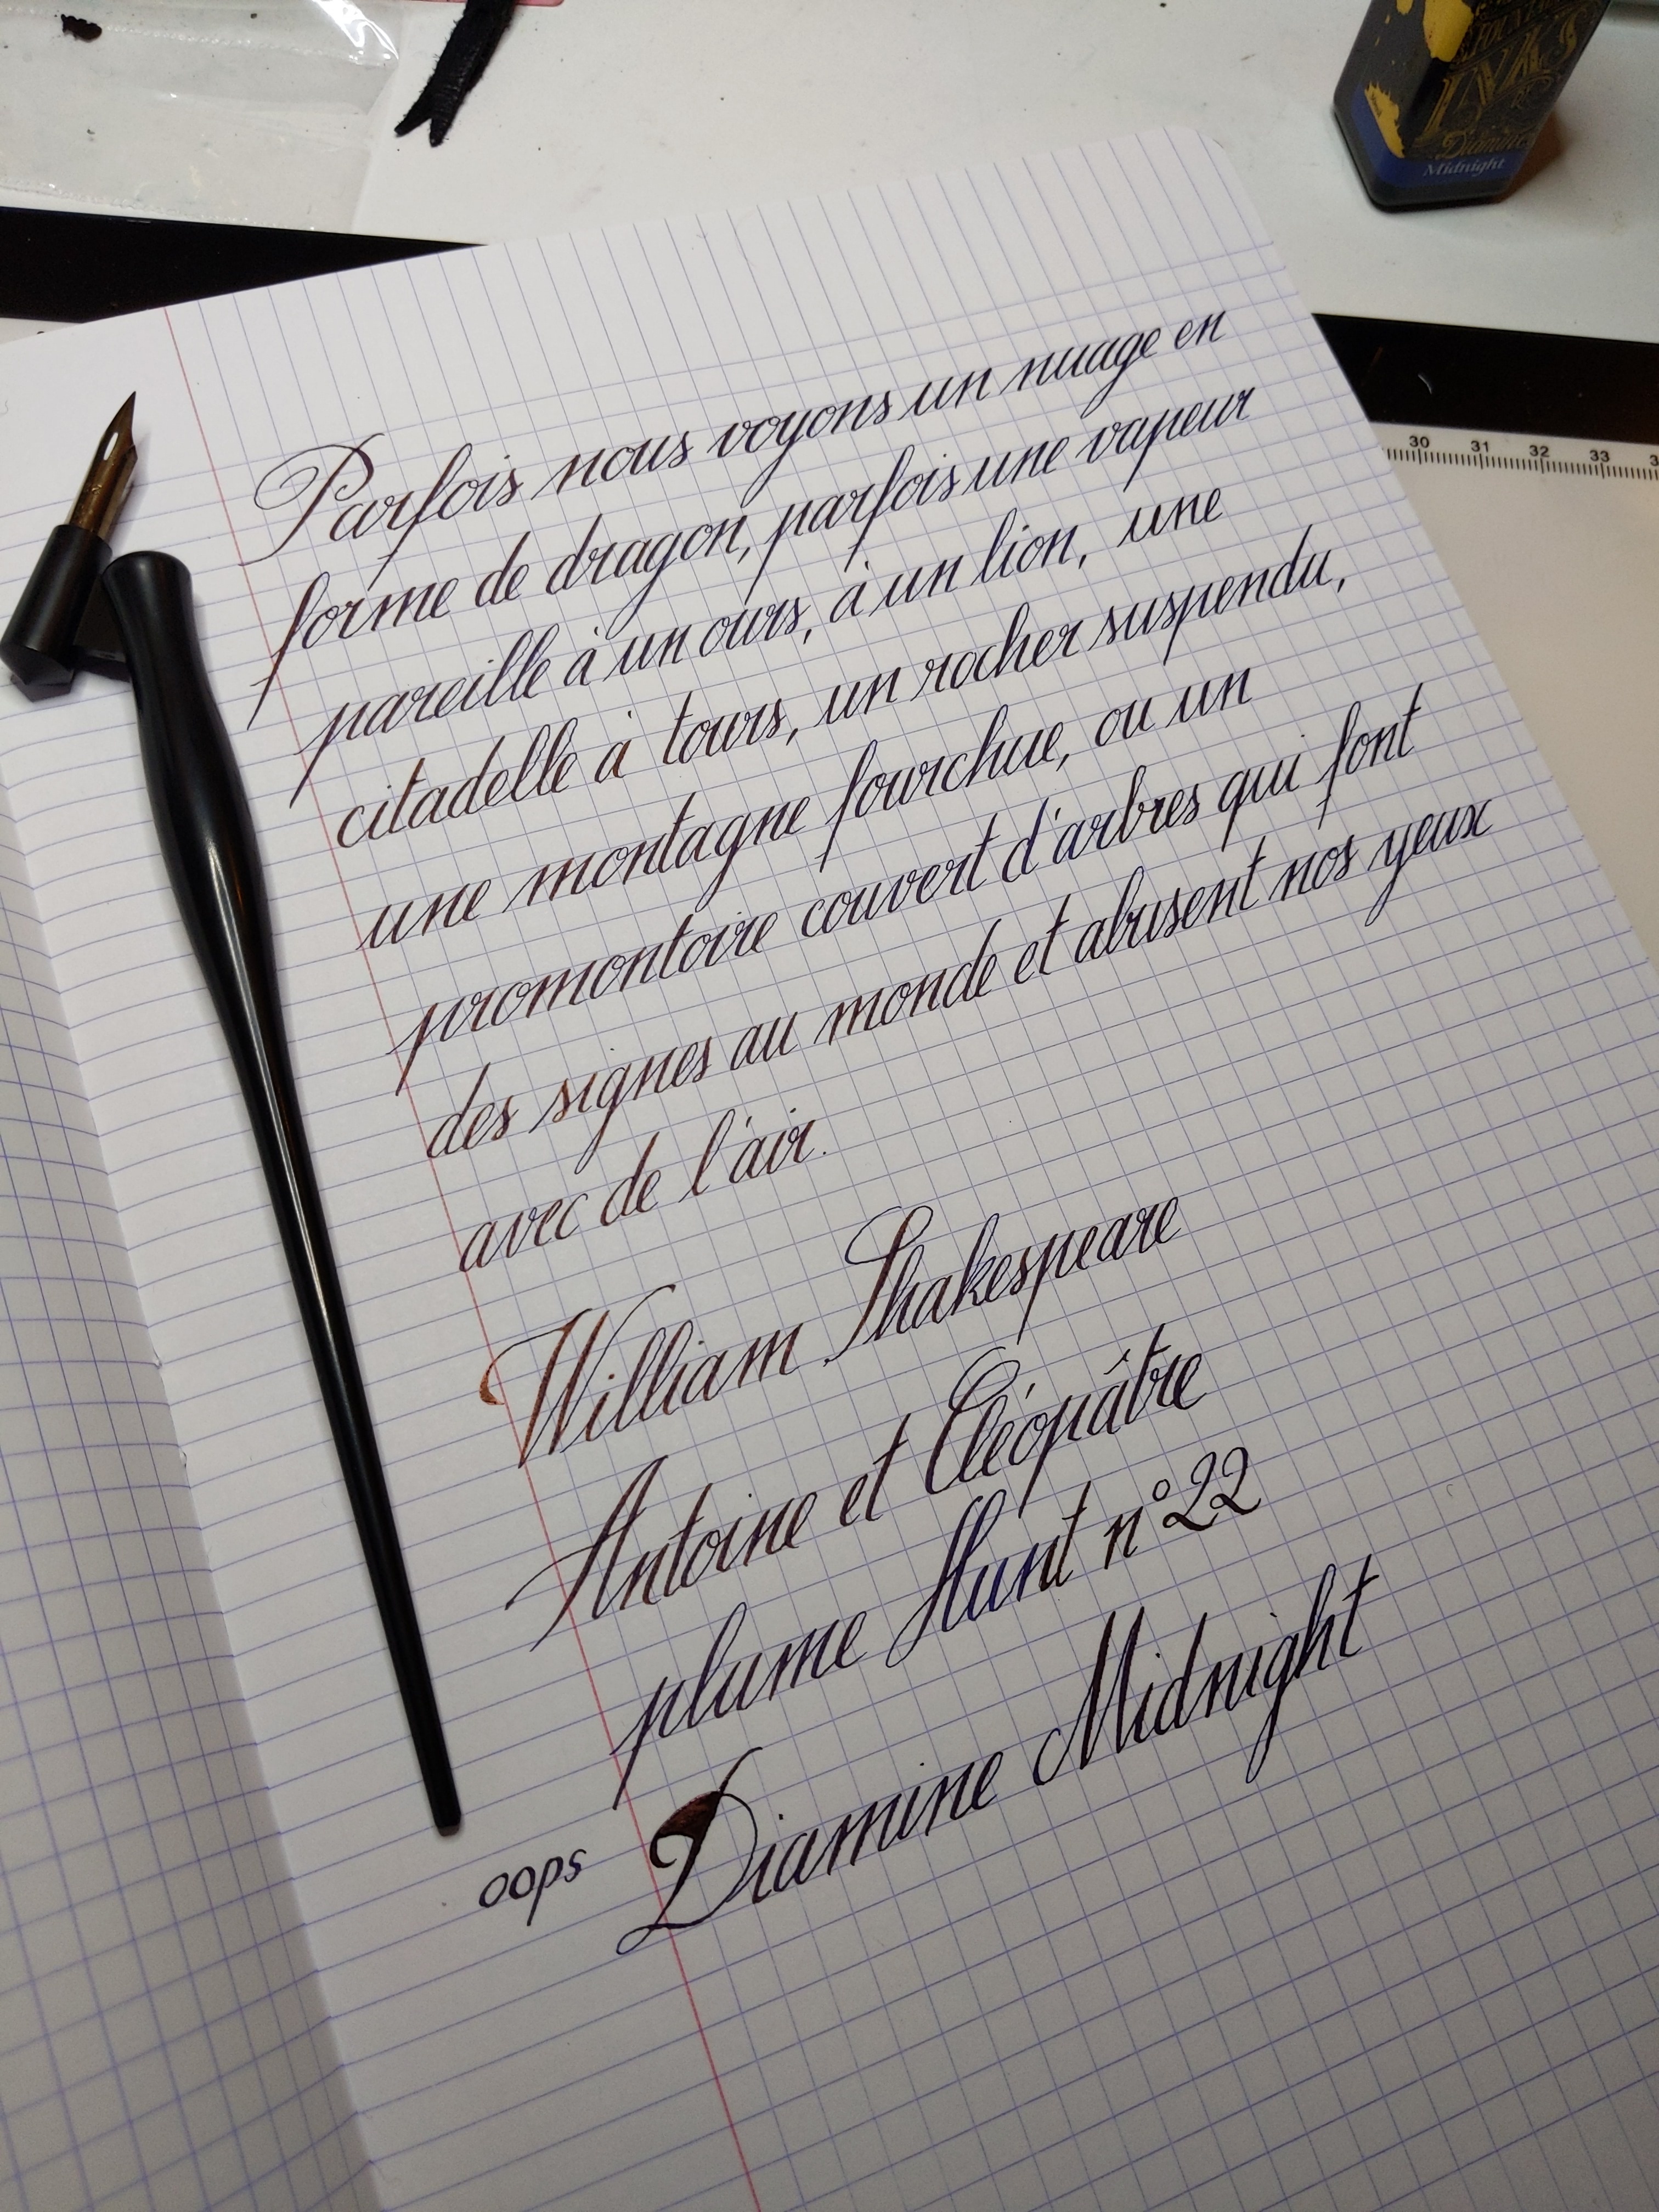 INKS
Diamine
Midnight
30 31 32 33
Parfois nous voyons un nuage en
forme de dragon, parfois une vapeur
pareille à un ours, à un lion, une
citadelle à tours, un rocher suspendu,
une montagne fourchue, ou un
promontoire couvert d'arbres qui font
des signes au monde et abusent nos yeux
avec de l'air.
William Shakespeare
Antoine et Cléopâtre
plume Hunt n°22
Diamine Midnight
oops